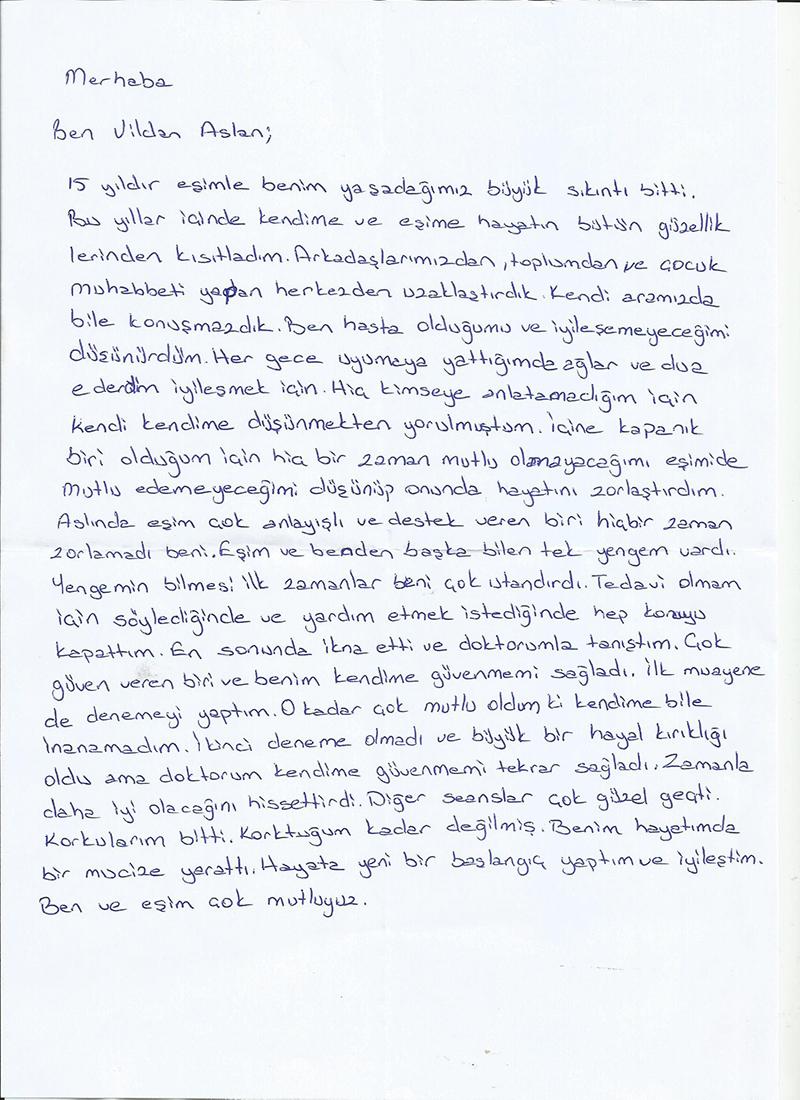 Merhaba
Ben Vildan Aslan;
15 yıldır eşimle benim yaşadağımız büyük sıkıntı bitti.
Bu yıllar içinde kendime ve eşime hayatın bütün güzellik
lerinden kısıtladım. Arkadaşlarımızdan, toplumdan ve çocuk
muhabbeti yapan herkezden uzaklaştırdık. Kendi aramızda
bile konuşmazdık. Ben hasta olduğumu ve iyileşemeyeceğimi
düşünürdüm. Her gece uyumaya yattığımda ağlar ve dua
ederdim iyileşmek için. Hiç kimseye anlatamadığım için
kendi kendime düşünmekten yorulmuştum. İçine kapanık
biri olduğum için hiç bir zaman mutlu olamayacağımı eşimide
mutlu edemeyeceğimi düşünüp onunda hayatını zorlaştırdım.
Aslında eşim çok anlayışlı ve destek veren biri hiçbir zaman
zorlamadı beni. Eşim ve benden başka bilen tek yengem vardı.
Yengemin bilmesi ilk zamanlar beni çok utandırdı. Tedavi olmam
için söylediğinde ve yardım etmek istediğinde hep konuyu
kapattım. En sonunda ikna etti ve doktorumla tanıştım. Çok
güven veren biri ve benim kendime güvenmemi sağladı. İlk muayene
de denemeyi yaptım. O kadar çok mutlu oldum ki kendime bile
inanamadım. İkinci deneme olmadı ve büyük bir hayal kırıklığı
oldu ama doktorum kendime güvenmemi tekrar sağladı. Zamanla
daha iyi olacağını hissettirdi. Diğer seanslar çok güzel geçti.
Korkularım bitti. Korktuğum kadar değilmiş. Benim hayatımda
bir mucize yarattı. Hayata yeni bir başlangıç yaptım ve iyileştim.
Ben ve eşim çok mutluyuz.